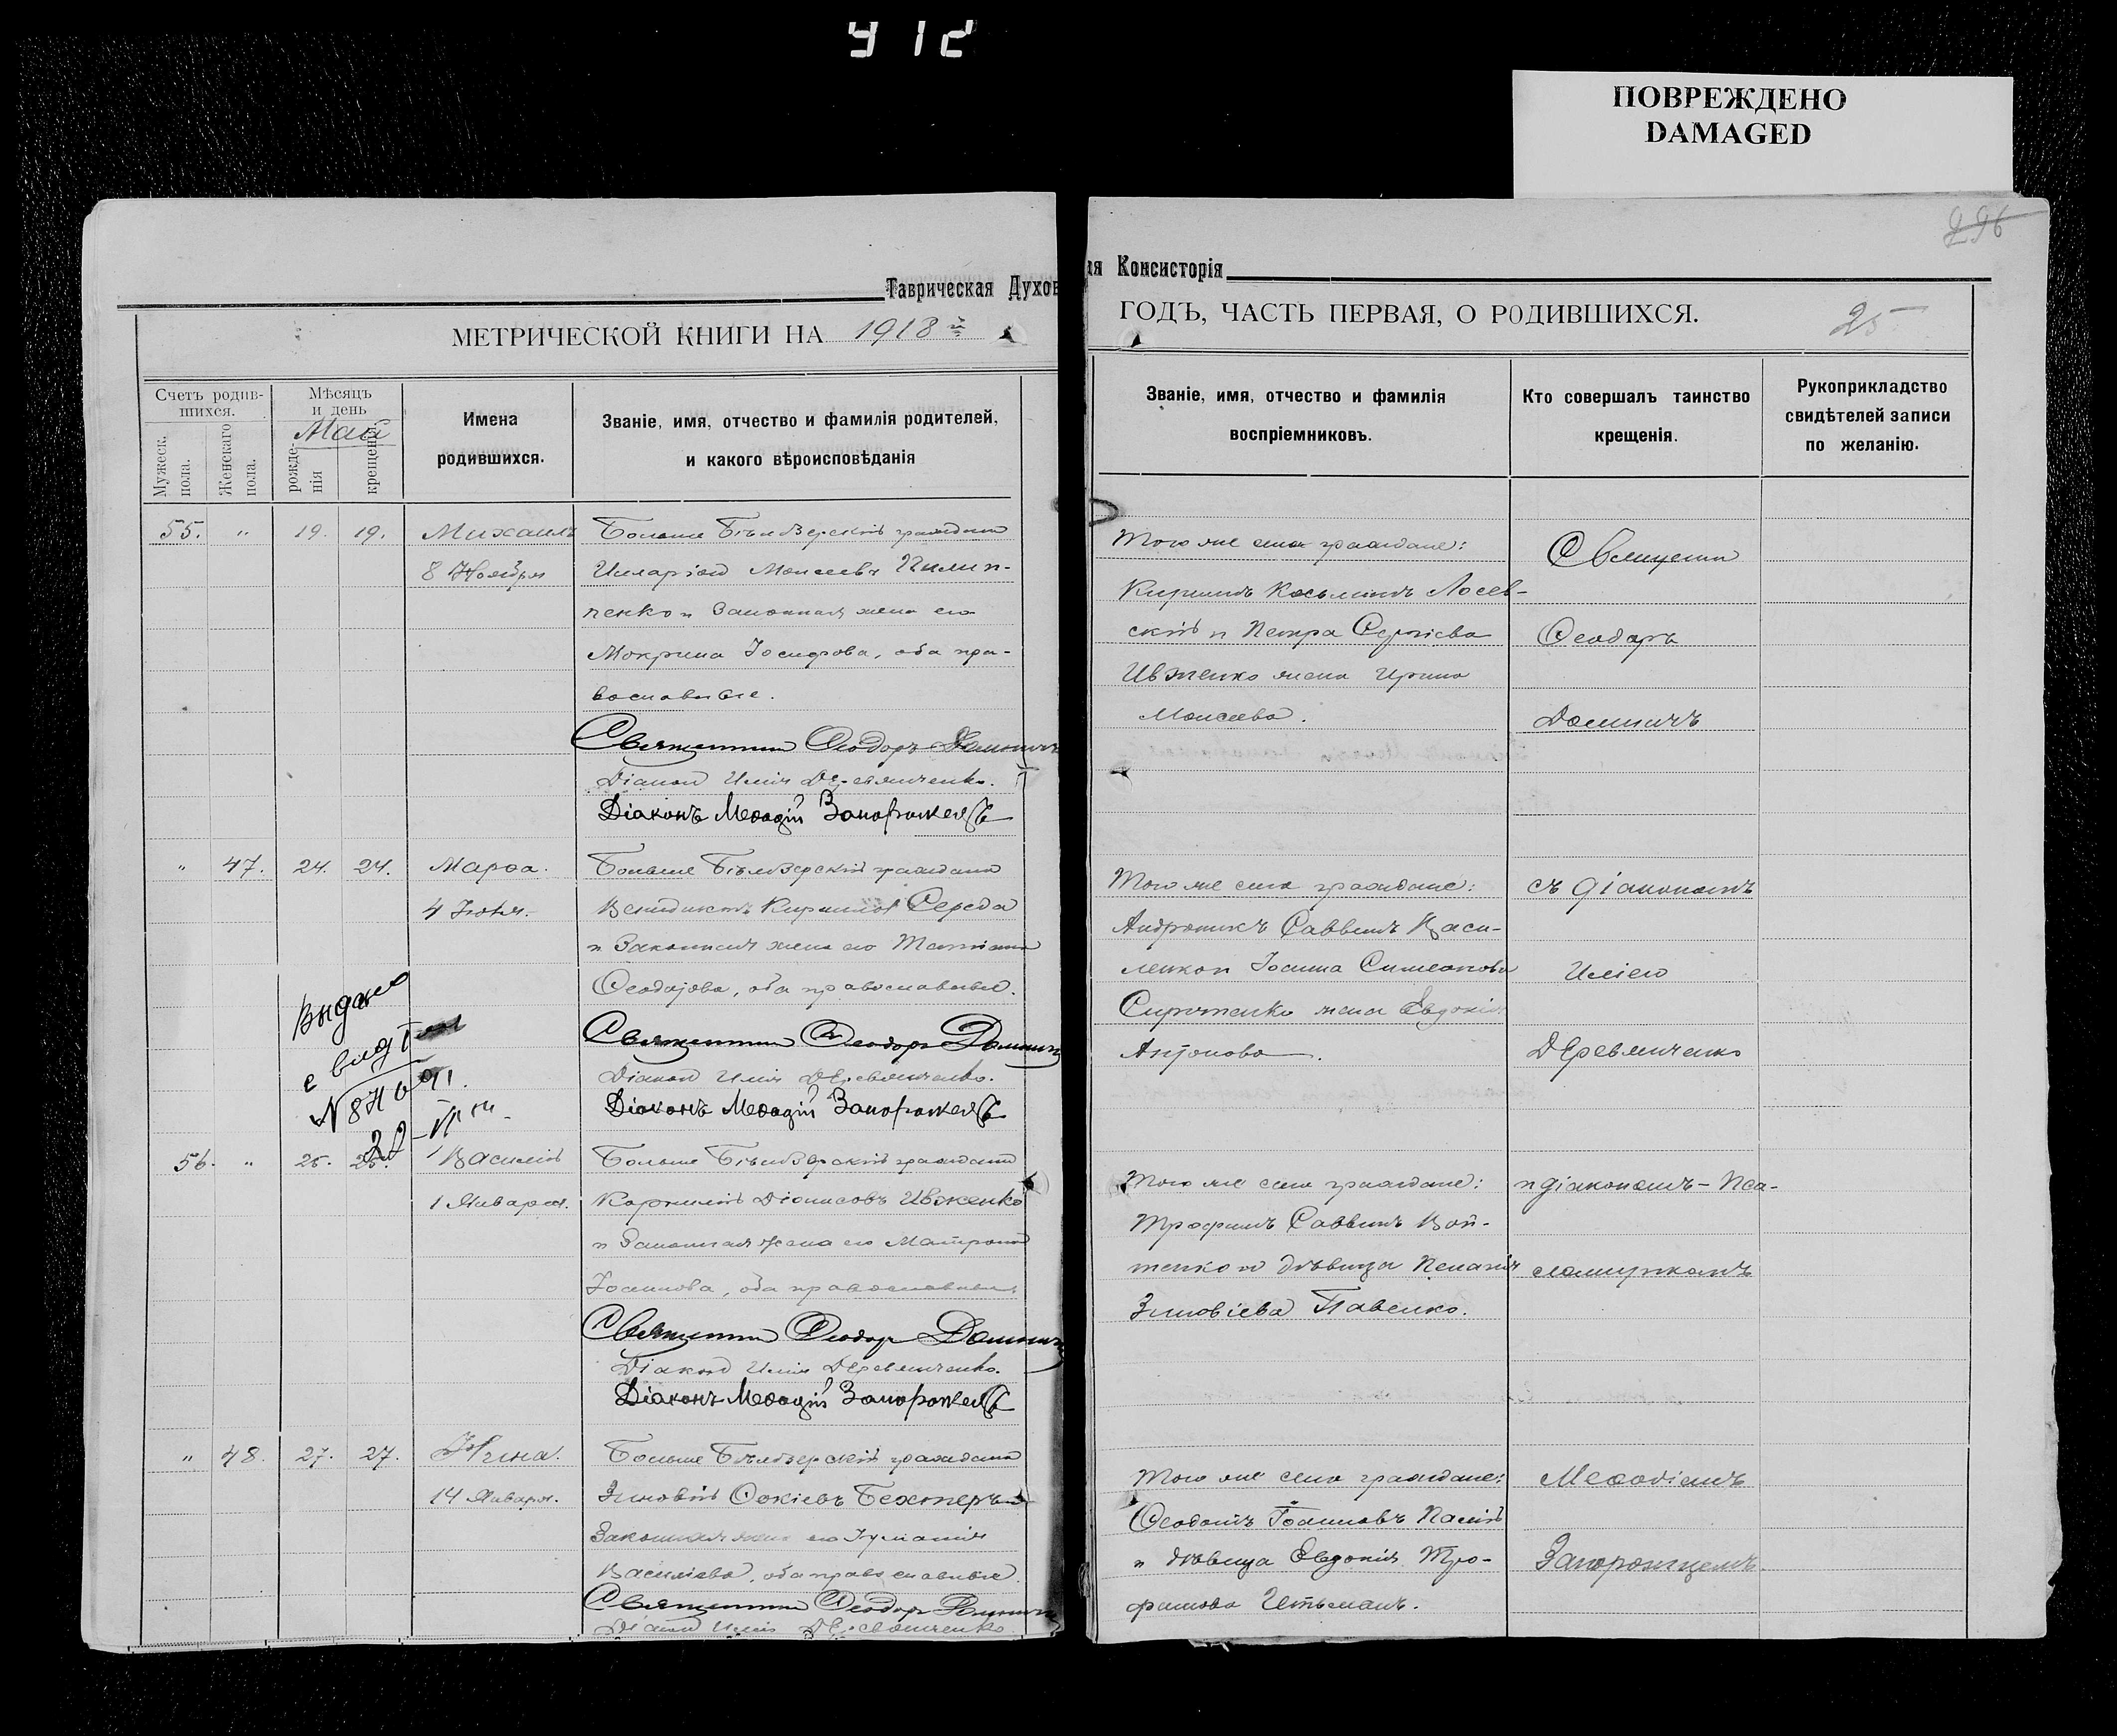 912
ПОВРЕЖДЕНО
DAMAGED
296
Таврическая Духов
ая Консисторія
МЕТРИЧЕСКОЙ КНИГИ НА 1918й
ГОДЪ, ЧАСТЬ ПЕРВАЯ, О РОДИВШИХСЯ.
25
Счетъ родив-
шихся.
Мужеск. пола.
Женскаго пола.
Мѣсяцъ
и день
Май
рожде-
нія
крещенія.
Имена
родившихся.
Званіе, имя, отчество и фамилія родителей,
и какого вѣроисповѣданія
Званіе, имя, отчество и фамилія
воспріемниковъ.
Кто совершалъ таинство
крещенія.
Рукоприкладство
свидѣтелей записи
по желанію.
55. " 19. 19. Михаилъ
8 Ноября
Больше Бѣлозерскій гражданин
Илларіон Моисеевъ Пилип-
пенко и Законная жена его
Мокрина Іосифова, оба пра-
вославные.
Священник Ѳеодоръ Доминичъ
Діакон Илія Деревянченко.
Діаконъ Меѳодій Запорожецъ
Того же села граждане:
Кириллъ Косьминъ Лосев-
скій и Петра Сергіева
Ивженко жена Ирина
Моисеева.
Священник
Ѳеодоръ
Доминичъ
" 47. 24. 24. Марѳа.
4 Іюля.
Больше Бѣлозерскій гражданин
Венидиктъ Кирилловъ Середа
и Законная жена его Татіана
Ѳеодорова, оба православные.
Священник Ѳеодоръ Доминичъ
Діакон Илія Деревянченко.
Діаконъ Меѳодій Запорожецъ
Того же села граждане:
Андроникъ Саввинъ Васи-
ленко и Іоанна Симеонова
Сиротенко жена Евдокія
Антонова.
съ діакономъ
Иліею
Деревянченко
Выдано
56. " 25. 25. Василій
1 Января.
Больше Бѣлозерскій гражданин
Корнилій Діонисовъ Ивженко
и Законная жена его Матрона
Іоаннова, оба православные.
Священник Ѳеодоръ Доминичъ
Діакон Илія Деревянченко.
Діаконъ Меѳодій Запорожецъ
Того же села граждане:
Трофимъ Саввинъ Вой-
тенко и дѣвица Пелагія
Зиновіева Павенко.
и діакономъ-Пса-
ломщикомъ
" 48. 27. 27. Нина.
14 Января.
Больше Бѣлозерскій гражданин
Зиновій Ѳокіевъ Бехтеръ и
Законная жена его Іуліанія
Василіева, оба православные
Священник Ѳеодоръ Доминичъ
Діакон Илія Деревянченко
Того же села граждане:
Ѳеодотъ Іоанновъ Палій
и дѣвица Евдокія Тро-
фимова Гетьманъ.
Меѳодіемъ
Запорожцемъ.